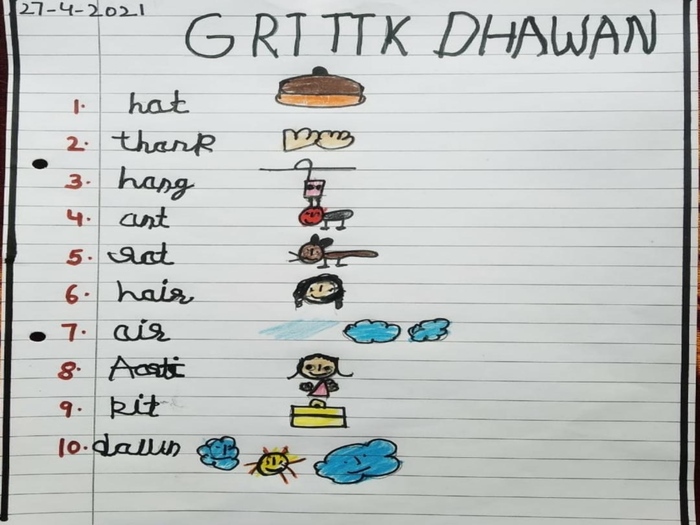 27-4-2021
GRITTK DHAWAN
1. hat
2. thank
3. hang
4. ant
5. rat
6. hair
7. air
8. Aarti
9. kit
10. dawn